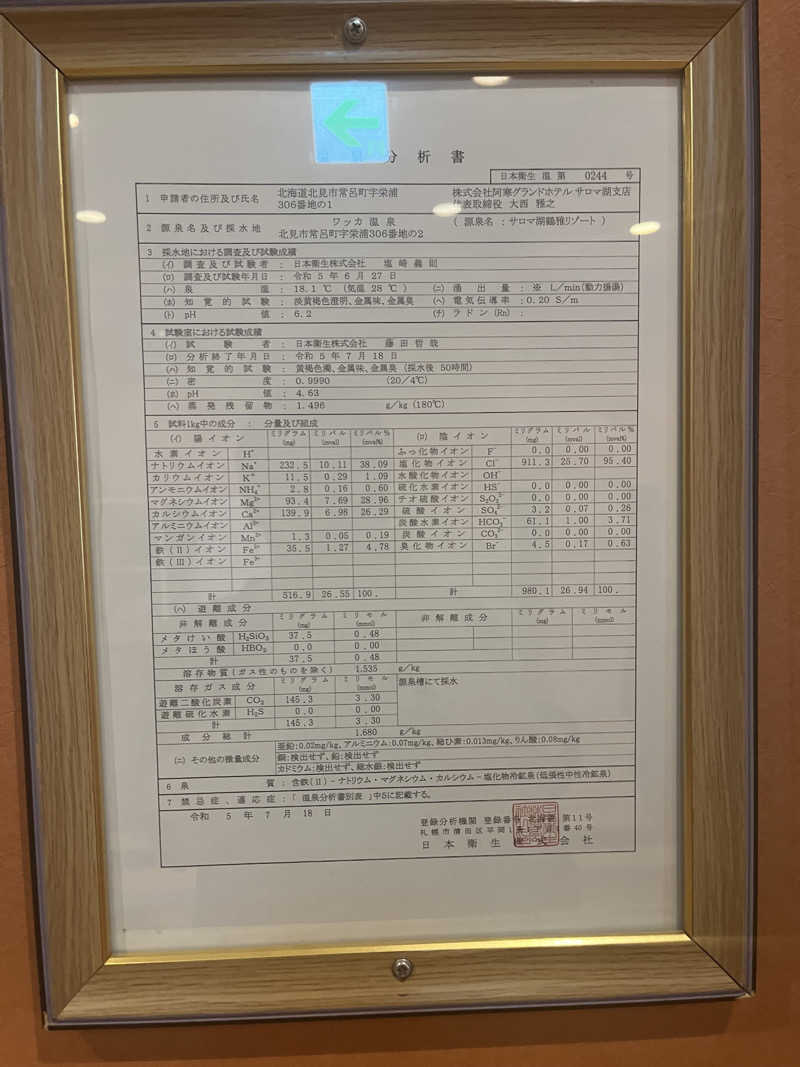 分析書
日本衛生 温 第 0244 号
1 申請者の住所及び氏名 北海道北見市常呂町字栄浦 306番地の1 株式会社阿寒グランドホテル サロマ湖支店 代表取締役 大西 雅之
2 源泉名及び採水地 ワッカ 温泉 (源泉名:サロマ湖鶴雅リゾート)
北見市常呂町字栄浦306番地の2
3 採水地における調査及び試験成績
(イ) 調査及び試験者 : 日本衛生株式会社 塩崎 義則
(ロ) 調査及び試験年月日 : 令和 5 年 6 月 27 日
(ハ) 泉温 : 18.1 ℃ (気温 28 ℃) (ニ) 湧出量 : ※ L/min(動力揚湯)
(ホ) 知覚的試験 : 淡黄褐色澄明、金属味、金属臭 (ヘ) 電気伝導率 : 0.20 S/m
(ト) pH値 : 6.2 (チ) ラドン(Rn) :
4 試験室における試験成績
(イ) 試験者 : 日本衛生株式会社 藤田哲哉
(ロ) 分析終了年月日 : 令和 5 年 7 月 18 日
(ハ) 知覚的試験 : 黄褐色濁、金属味、金属臭 (採水後 50時間)
(ニ) 密度 : 0.9990 (20/4℃)
(ホ) pH値 : 4.63
(ヘ) 蒸発残留物 : 1.496 g/kg (180℃)
5 試料1kg中の成分 : 分量及び組成
(イ) 陽イオン ミリグラム(mg) ミリバル(mval) ミリバル%(mval%) (ロ) 陰イオン ミリグラム(mg) ミリバル(mval) ミリバル%(mval%)
水素イオン H⁺ ふっ化物イオン F⁻ 0.0 0.00 0.00
ナトリウムイオン Na⁺ 232.5 10.11 38.09 塩化物イオン Cl⁻ 911.3 25.70 95.40
カリウムイオン K⁺ 11.5 0.29 1.09 水酸化物イオン OH⁻
アンモニウムイオン NH₄⁺ 2.8 0.16 0.60 硫化水素イオン HS⁻ 0.0 0.00 0.00
マグネシウムイオン Mg²⁺ 93.4 7.69 28.96 チオ硫酸イオン S₂O₃²⁻ 0.0 0.00 0.00
カルシウムイオン Ca²⁺ 139.9 6.98 26.29 硫酸イオン SO₄²⁻ 3.2 0.07 0.26
アルミニウムイオン Al³⁺ 炭酸水素イオン HCO₃⁻ 61.1 1.00 3.71
マンガンイオン Mn²⁺ 1.3 0.05 0.19 炭酸イオン CO₃²⁻ 0.0 0.00 0.00
鉄(II)イオン Fe²⁺ 35.5 1.27 4.78 臭化物イオン Br⁻ 4.5 0.17 0.63
鉄(III)イオン Fe³⁺
計 516.9 26.55 100. 計 980.1 26.94 100.
(ハ) 遊離成分
非解離成分 ミリグラム(mg) ミリモル(mmol) 非解離成分 ミリグラム(mg) ミリモル(mmol)
メタけい酸 H₂SiO₃ 37.5 0.48
メタほう酸 HBO₂ 0.0 0.00
計 37.5 0.48
溶存物質(ガス性のものを除く) 1.535 g/kg
溶存ガス成分 ミリグラム(mg) ミリモル(mmol) 源泉槽にて採水
遊離二酸化炭素 CO₂ 145.3 3.30
遊離硫化水素 H₂S 0.0 0.00
計 145.3 3.30
成分総計 1.680 g/kg
(ニ) その他の微量成分 亜鉛:0.02mg/kg、アルミニウム:0.07mg/kg、総ひ素:0.013mg/kg、りん酸:0.08mg/kg
銅:検出せず、鉛:検出せず
カドミウム:検出せず、総水銀:検出せず
6 泉質 : 含鉄(II)-ナトリウム・マグネシウム・カルシウム-塩化物冷鉱泉(低張性中性冷鉱泉)
7 禁忌症、適応症 : 「温泉分析書別表」中5に記載する。
令和 5 年 7 月 18 日
登録分析機関 登録番号 北海道 第11号
札幌市清田区平岡
番40号
日本衛生株式会社